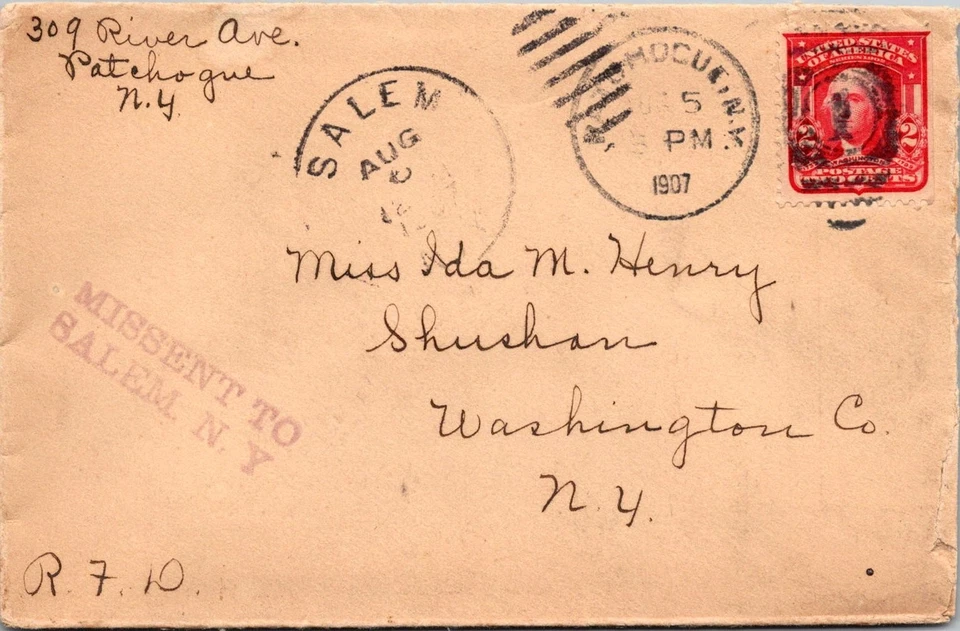 309 River Ave.
Patchogue
N.Y.
SALEM
AUG
PATCHOGUE, N.Y.
5
PM
1907
UNITED STATES
OF AMERICA
2 2
POSTAGE
CENTS
Miss Ida M. Henry
Shushan
Washington Co.
N.Y.
MISSENT TO
SALEM, N.Y
R.F.D.